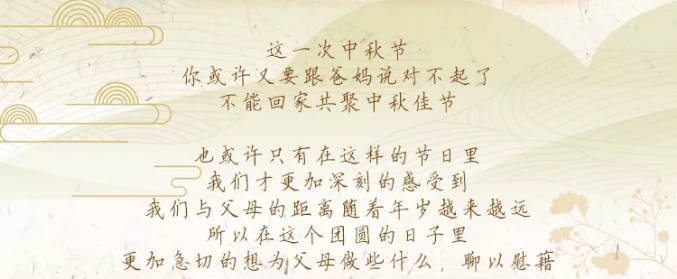 这一次中秋节
你或许又要跟爸妈说对不起了
不能回家共聚中秋佳节
也或许只有在这样的节日里
我们才更加深刻的感受到
我们与父母的距离随着年岁越来越远
所以在这个团圆的日子里
更加急切的想为父母做些什么，聊以慰藉